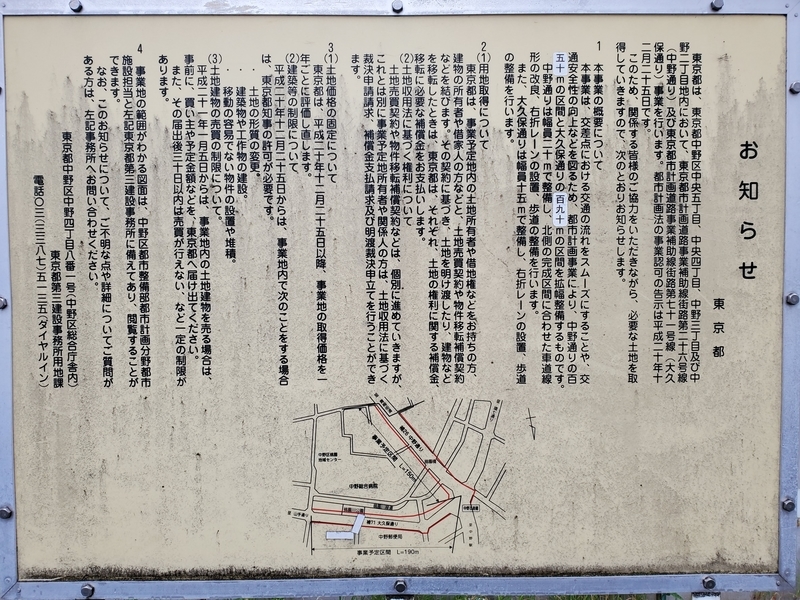 お知らせ
東京都
東京都は、東京都中野区中央五丁目、中央四丁目、中野三丁目及び中
野二丁目地内において、東京都市計画道路事業補助線街路第二十六号線
（中野通り）及び東京都市計画道路事業補助線街路第七十一号線（大久
保通り）事業を行います。都市計画法の事業認可の告示は平成二十年十
二月二十五日です。
このため、関係する皆様のご協力をいただきながら、必要な土地を取
得していきますので、次のとおりお知らせします。
1 本事業の概要について
本事業は、交差点における交通の流れをスムーズにすることや、交
通安全性の向上などを図るため、都市計画事業により、中野通りの百
五十ｍの区間と大久保通りの百九十ｍの区間を拡幅整備するものです。
中野通りは幅員二十ｍで整備し、北側の完成区間に合わせた車道線
形の改良、右折レーンの設置、歩道の整備を行います。
また、大久保通りは幅員十五ｍで整備し、右折レーンの設置、歩道
の整備を行います。
2 (1)用地取得について
東京都は、事業予定地内の土地所有者や借地権などをお持ちの方、
建物の所有者や借家人の方などと、土地売買契約や物件移転補償契約
などを結びます。その契約に基づき、土地を明け渡したり、建物など
を移転したときは、東京都は、それぞれ、土地の権利に関する補償金、
移転に必要な補償金をお支払いします。
(2)土地収用法に基づく権利について
土地売買契約や物件移転補償契約などは、個別に進めていきますが、
これとは別に事業予定地所有者及び関係人の方は、土地収用法に基づく
裁決申請請求、補償金支払請求及び明渡裁決申立てを行うことができ
ます。
3 (1)土地価格の固定について
東京都は、平成二十年十二月二十五日以降、事業地の取得価格を一
年ごとに評価します。
(2)建築等の制限について
平成二十年十二月二十五日からは、事業地内で次のことをする場合
は、東京都知事の許可が必要です。
・土地の形質の変更。
・建築物や工作物の建設。
・移動の容易でない物件の設置や堆積。
(3)土地建物の売買の制限について。
平成二十一年一月五日からは、事業地内の土地建物を売る場合は
事前に、買い主や予定金額などを、東京都へ届け出てください。
また、その届出後三十日以内は売買が行えない、など一定の制限が
あります。
4 事業地の範囲がわかる図面は、中野区都市整備部都市計画分野都市
施設担当と左記東京都第三建設事務所に備えてあり、閲覧することが
できます。
なお、このお知らせについて、ご不明な点や詳細についてご質問が
ある方は、左記事務所へお問い合わせください。
東京都中野区中野四丁目八番一号（中野区総合庁舎内）
東京都第三建設事務所用地課
電話〇三（三三八七）五一三五（ダイヤルイン）
補26 中野通り
事業予定区間 L=150m
中野総合病院
補71 大久保通り
中野郵便局
事業予定区間 L=190m